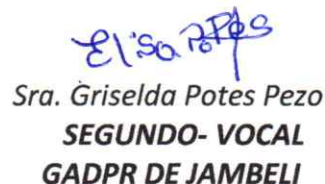 Elisa Potes
Sra. Griselda Potes Pezo
SEGUNDO- VOCAL
GADPR DE JAMBELI